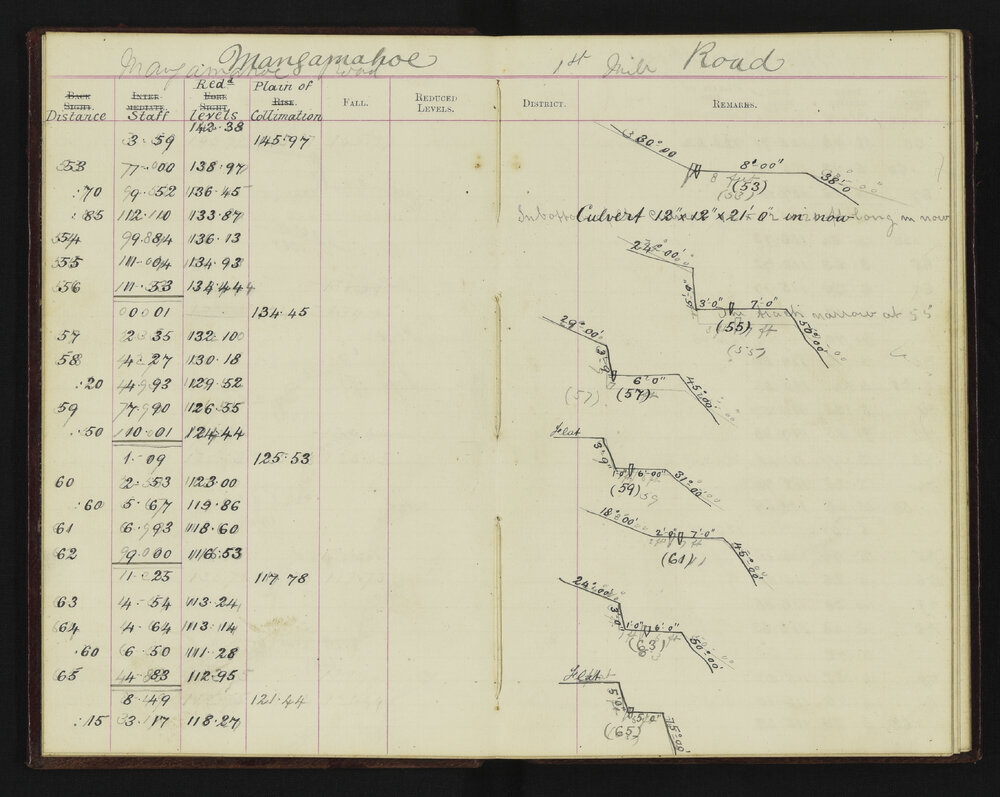 Mangamahoe 1st Mile Road
Back Sight. Distance
Inter- mediate. Staff
Red^d Fore Sight. Levels
Plain of Rise. Collimation
Fall.
Reduced Levels.
District.
Remarks.
142·38
3·59 145·97
53 7·00 138·97
:70 9·52 136·45
:85 12·10 133·87
54 9·84 136·13
55 11·04 134·93
56 11·53 134·44
0·01 134·45
57 2·35 132·10
58 4·27 130·18
:20 4·93 129·52
59 7·90 126·55
:50 10·01 124·44
1·09 125·53
60 2·53 123·00
:60 5·67 119·86
61 6·93 118·60
62 9·00 116·53
1·25 117·78
63 4·54 113·24
64 4·64 113·14
:60 6·50 111·28
65 4·83 112·95
8·49 121·44
:15 3·17 118·27
30°00 8'·00" 38°0
(53)
Culvert 12"x12"x21'·0" in now
24°00'
3'·0" 7'·0" 50°00'
track narrow at 55
(55)
29°00'
3'·9" 6'·0" 45°00'
(57)
Flat
3'·9" 1'·0" 6'·00" 31°00'
(59)
18°00'
2'·0" 7'·0" 45°00'
(61)
24°00'
3'·0 1'·0" 6'·0" 50°00'
(63)
Flat
5'·0" 5'·0" 75°00'
(65)